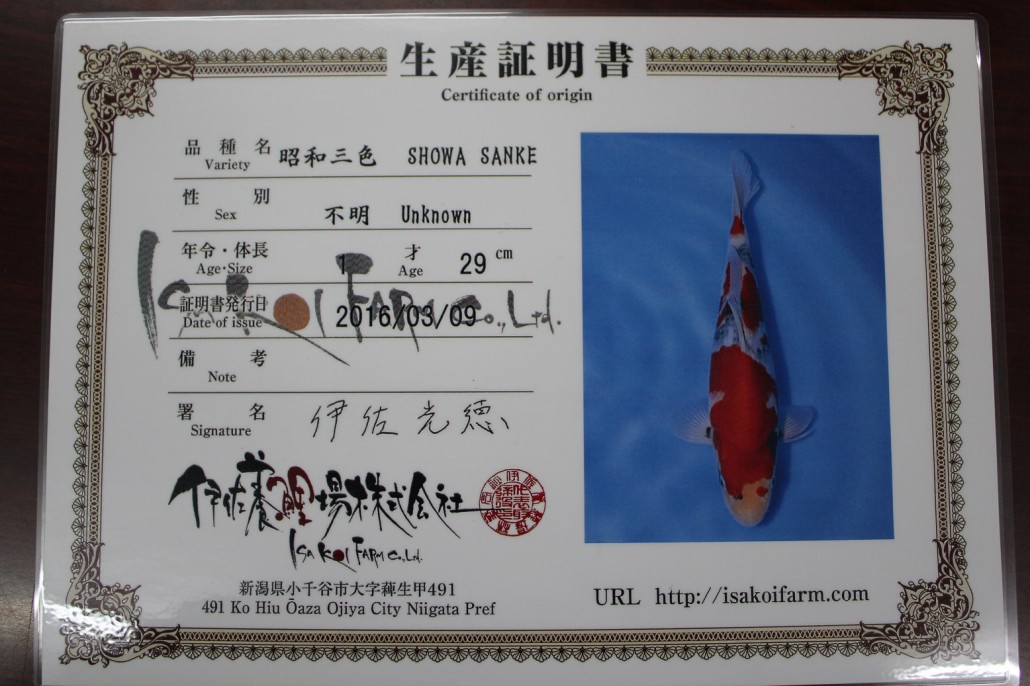 生産証明書
Certificate of origin
品種名 昭和三色 SHOWA SANKE
Variety
性別 不明 Unknown
Sex
年令・体長 1 才 29 cm
Age・Size Age
証明書発行日 2016/03/09
Date of issue
ISA KOI FARM Co., Ltd.
備考
Note
署名 伊佐光徳
Signature
伊佐養鯉場株式会社
ISA KOI FARM Co., Ltd.
新潟県小千谷市大字薭生甲491
491 Ko Hiu Ōaza Ojiya City Niigata Pref
URL http://isakoifarm.com